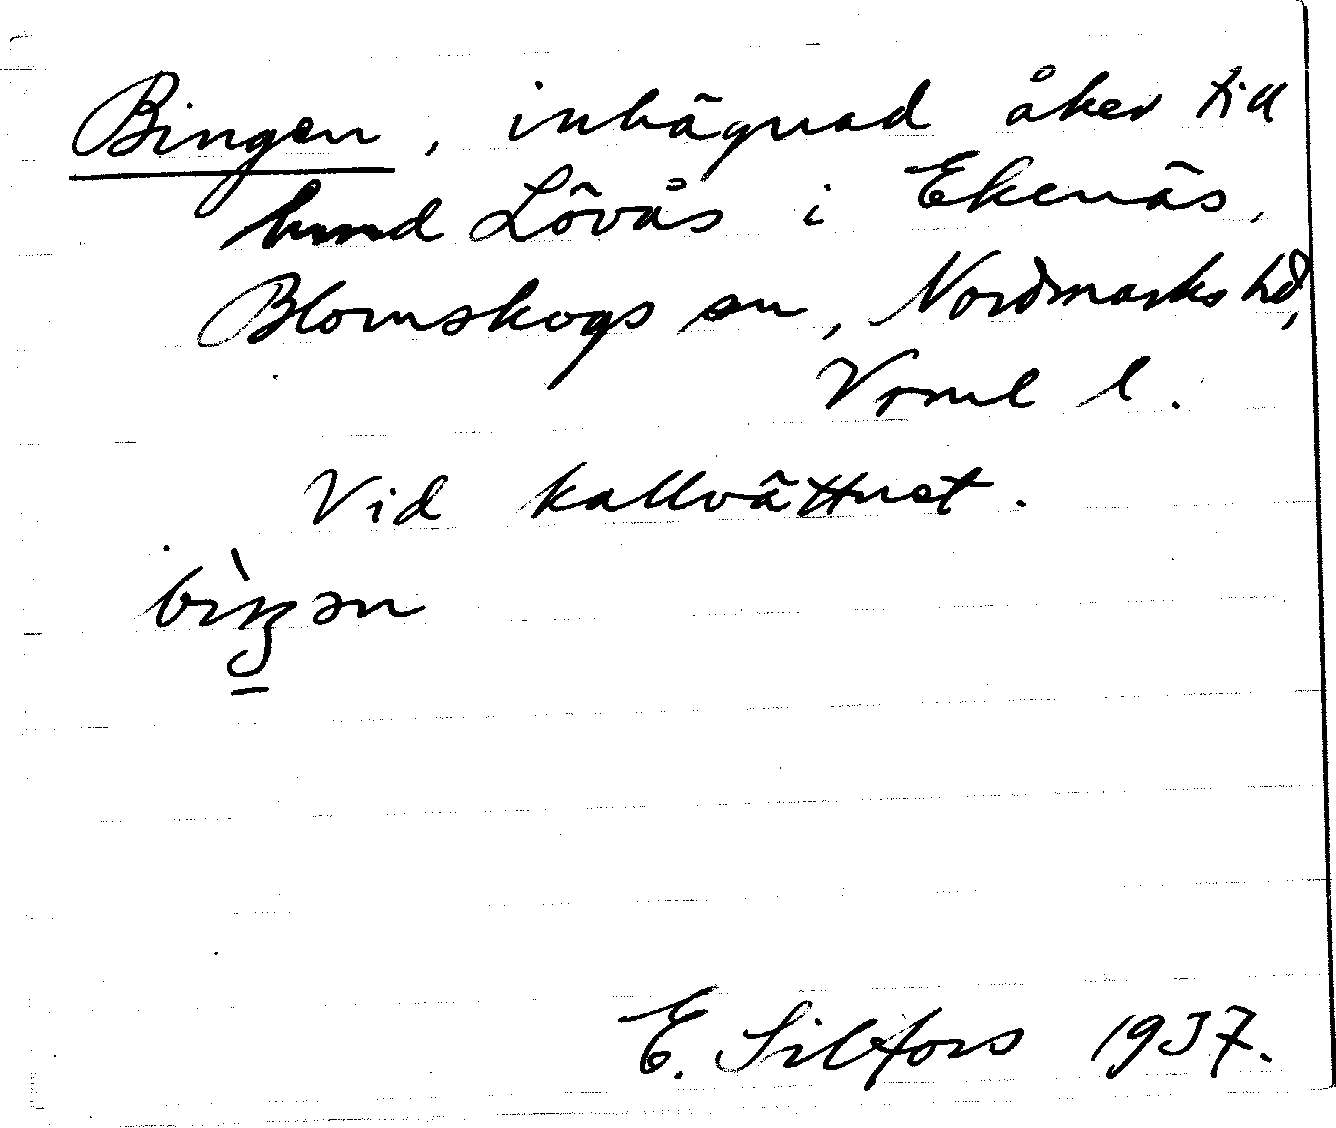 Bingen, inhägnad åker till
hmd Lövås i Ekenäs,
Blomskogs sn, Nordmarks hd,
Vrml l.
Vid kallvättnet.
E. Silfors 1937.